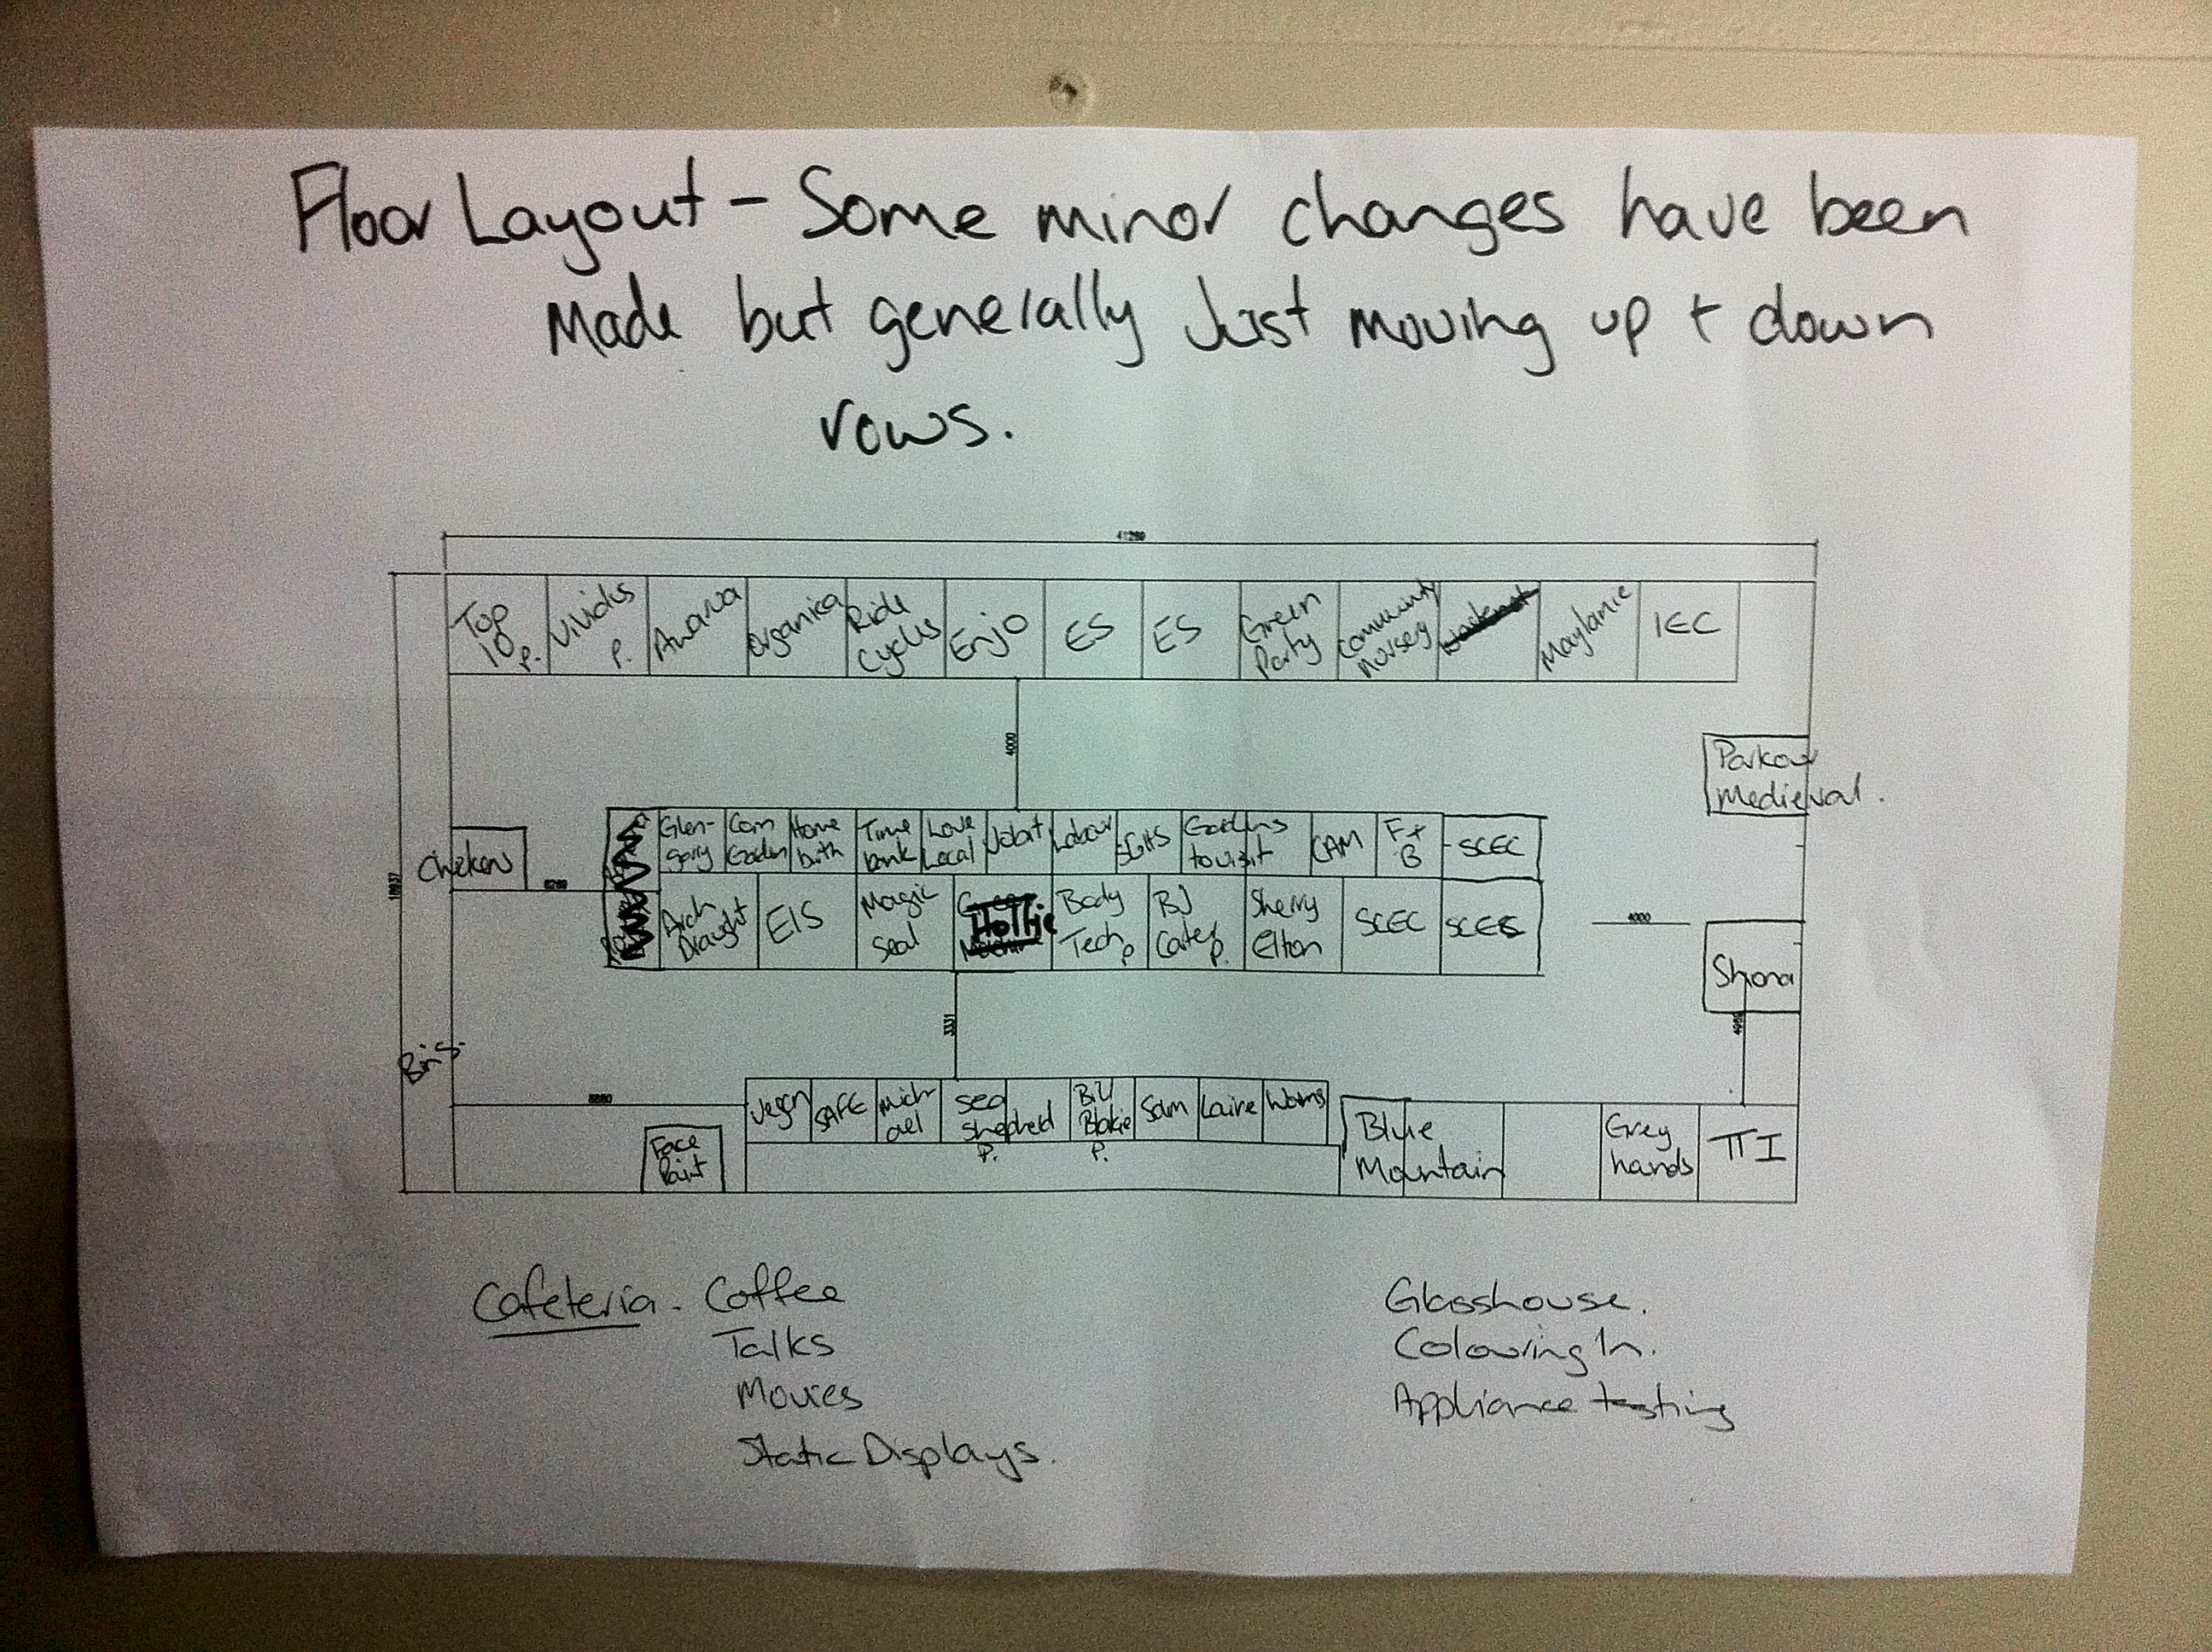 Floor Layout - Some minor changes have been
Made but generally Just moving up + down
rows.
41280
Top
10 P.
Vividus
P.
Awarua
Organica
Ride
Cycles
Enjo
ES
ES
Green
Party
Community
Nursey
Maylanie
IEC
4000
Parkour
Medieval.
Chickens
6260
Glen-
gary
Com
Garden
Home
birth
Time
bank
Love
Local
Jobait
Labour
SGHS
Gardens
to visit
CAM
F+
B
SCEC
Arch
Draught
EIS
Magic
Seal
Hollie
Body
Tech P
BJ
Cater P.
Sherry
Elton
SCEC
SCEC
4000
Shona
3331
Bins.
8880
Face
Paint
Vegan
SAFE
Mich
ael
Sea
shepherd
P.
Bill
Blakie
P.
Sam
Laine
Worms
Blue
Mountain
Grey
hands
TTI
Cafeteria. Coffee
Talks
Movies
Static Displays.
Glasshouse.
Colouring In.
Appliance testing